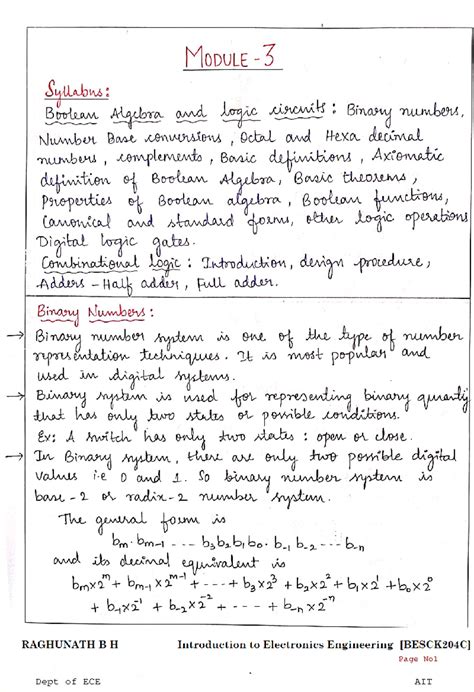 MODULE-3
Syllabus:
Boolean Algebra and logic circuits: Binary numbers,
Number Base conversions, Octal and Hexa decimal
numbers, complements, Basic definitions, Axiomatic
definition of Boolean Algebra, Basic theorems,
Properties of Boolean algebra, Boolean functions,
Canonical and standard forms, other logic operations
Digital logic gates.
Combinational logic: Introduction, design procedure,
Adders - Half adder, Full adder.
Binary Numbers:
→ Binary number system is one of the type of number
representation techniques. It is most popular and
used in digital systems.
→ Binary system is used for representing binary quantity
that has only two states or possible conditions.
Ex: A switch has only two states: open or close.
→ In Binary system, there are only two possible digital
values i.e 0 and 1. So binary number system is
base-2 or radix-2 number system.
The general form is
bₘ bₘ₋₁ ---- b₃b₂b₁b₀ . b₋₁ b₋₂ --- b₋ₙ
and its decimal equivalent is
bₘx2ᵐ + bₘ₋₁x2ᵐ⁻¹ + ---- + b₃x2³ + b₂x2² + b₁x2¹ + b₀x2⁰
+ b₋₁x2⁻¹ + b₋₂x2⁻² + --- + b₋ₙx2⁻ⁿ
RAGHUNATH B H Introduction to Electronics Engineering [BESCK204C]
Page No1
Dept of ECE AIT